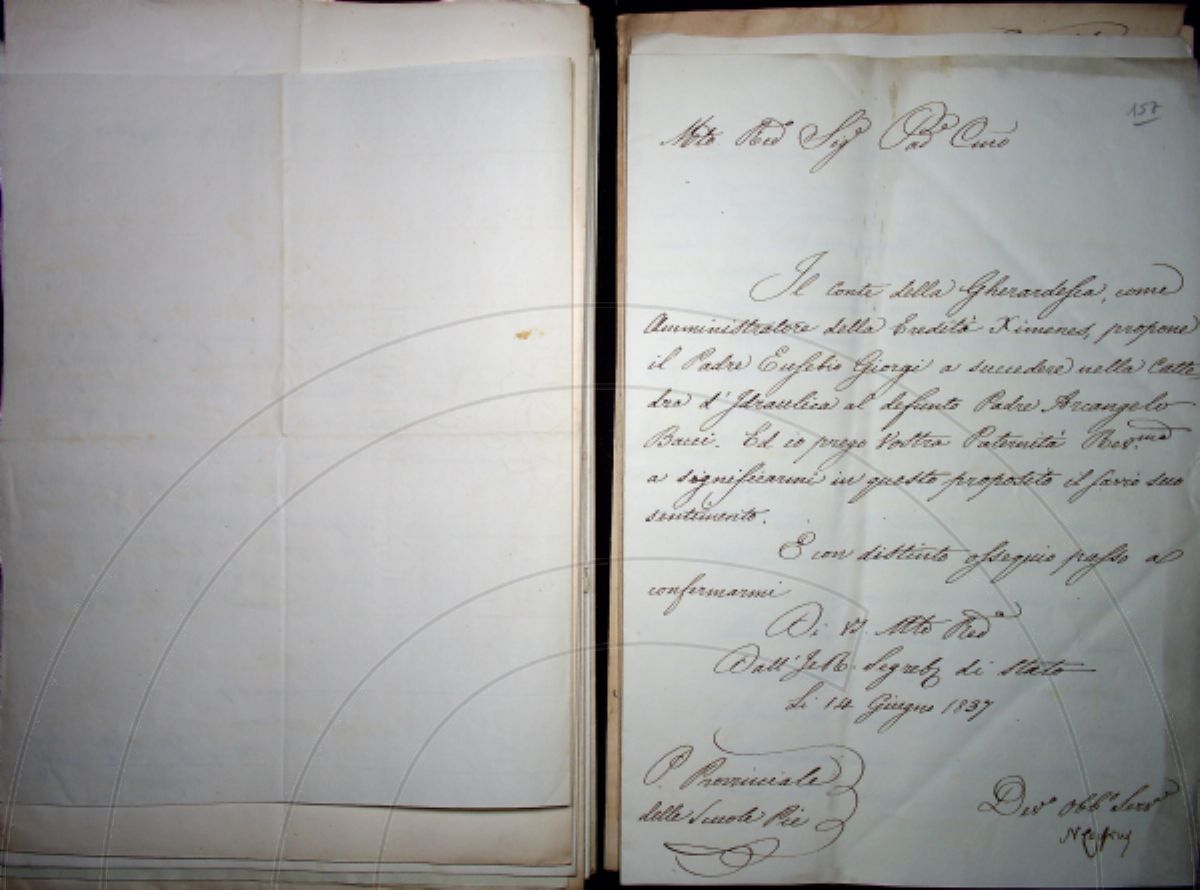 157
Mto Red Sigr Pad Cmo
Il conte della Gherardesca, come
Amministratore della Eredità Ximenes, propone
il Padre Eusebio Giorgi a succedere nella Catte
dra d'Idraulica al defunto Padre Arcangelo
Bacci. Ed io prego Vostra Paternità Rev.ma
a significarmi in questo proposito il savio suo
sentimento.
E con distinto ossequio passo a
confermarmi
Di V. Mto Reda
Dall'I e R. Segret di Stato
Li 14 Giugno 1837
P. Provinciale
delle Scuole Pie
Devo Obbo Servo